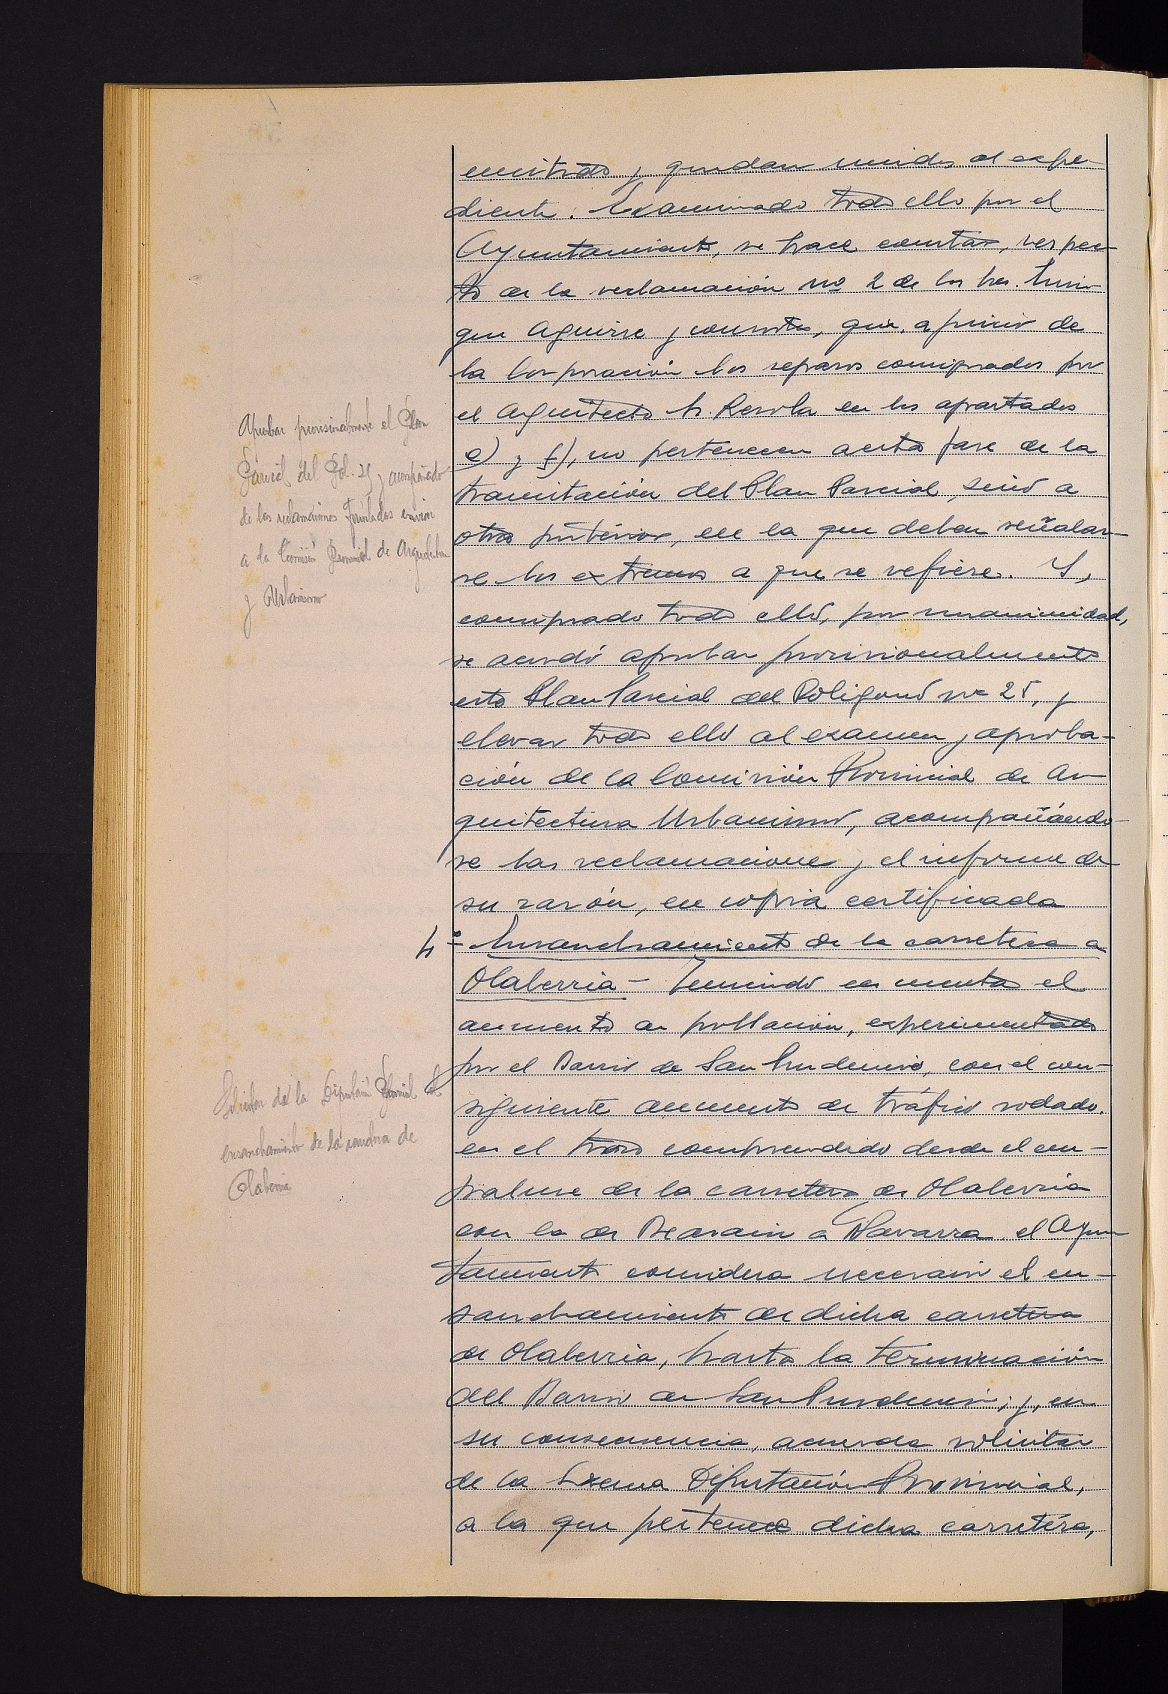 emitido y quedan unidos al expe-
diente. Examinado todo ello por el
Ayuntamiento, se hace constar, respec-
to de la reclamación nº 2 de los Sres.
Aguirre y consortes, que, a juicio de
la Corporación los reparos comprados por
el Arquitecto Sr. en los apartados
e) y f), no pertenecen a esta fase de la
tramitación del Plan Parcial, sinó a
otra posterior, en la que deban señalar-
se los extremos a que se refiere. Y,
comprado todo elló, por unanimidad,
se acordó aprobar provisionalmente
este Plan Parcial del Poligonó nº 25, y
elevar todo elló al examen y aproba-
ción de la Comisión Provincial de Ar-
quitectura Urbanismo, acompañándo-
se las reclamaciones y el informe de
su razón, en copia certificada
4º = Ensanchamiento de la carretera a
Olaberria - Teniendo en cuenta el
aumento de población, experimentado
por el Barrio de San Prudencio, con el con-
siguiente aumento de tráfico rodado.
en el trozo comprendido desde el em-
palme de la carretera de Olaberria
con la de Beasain a Navarra el Ayun
tamiento considera necesario el en-
sanchamiento de dicha carretera
de Olaberria, hasta la terminación
del Barrio de San Prudencio; y, en
su consecuencia, acuerda solicitar
de la Exema Diputación Provincial,
a la que pertenece dicha carretéra,
Aprobar provisionalmente el Plan
Parcial del Pol. 25 y acompañado
de las reclamaciones formuladas enviar
a la Comisión Provincial de Arquitectura
y Urbanismo
Solicitar de la Diputación Provincial el
ensanchamiento de la carretera de
Olaberria